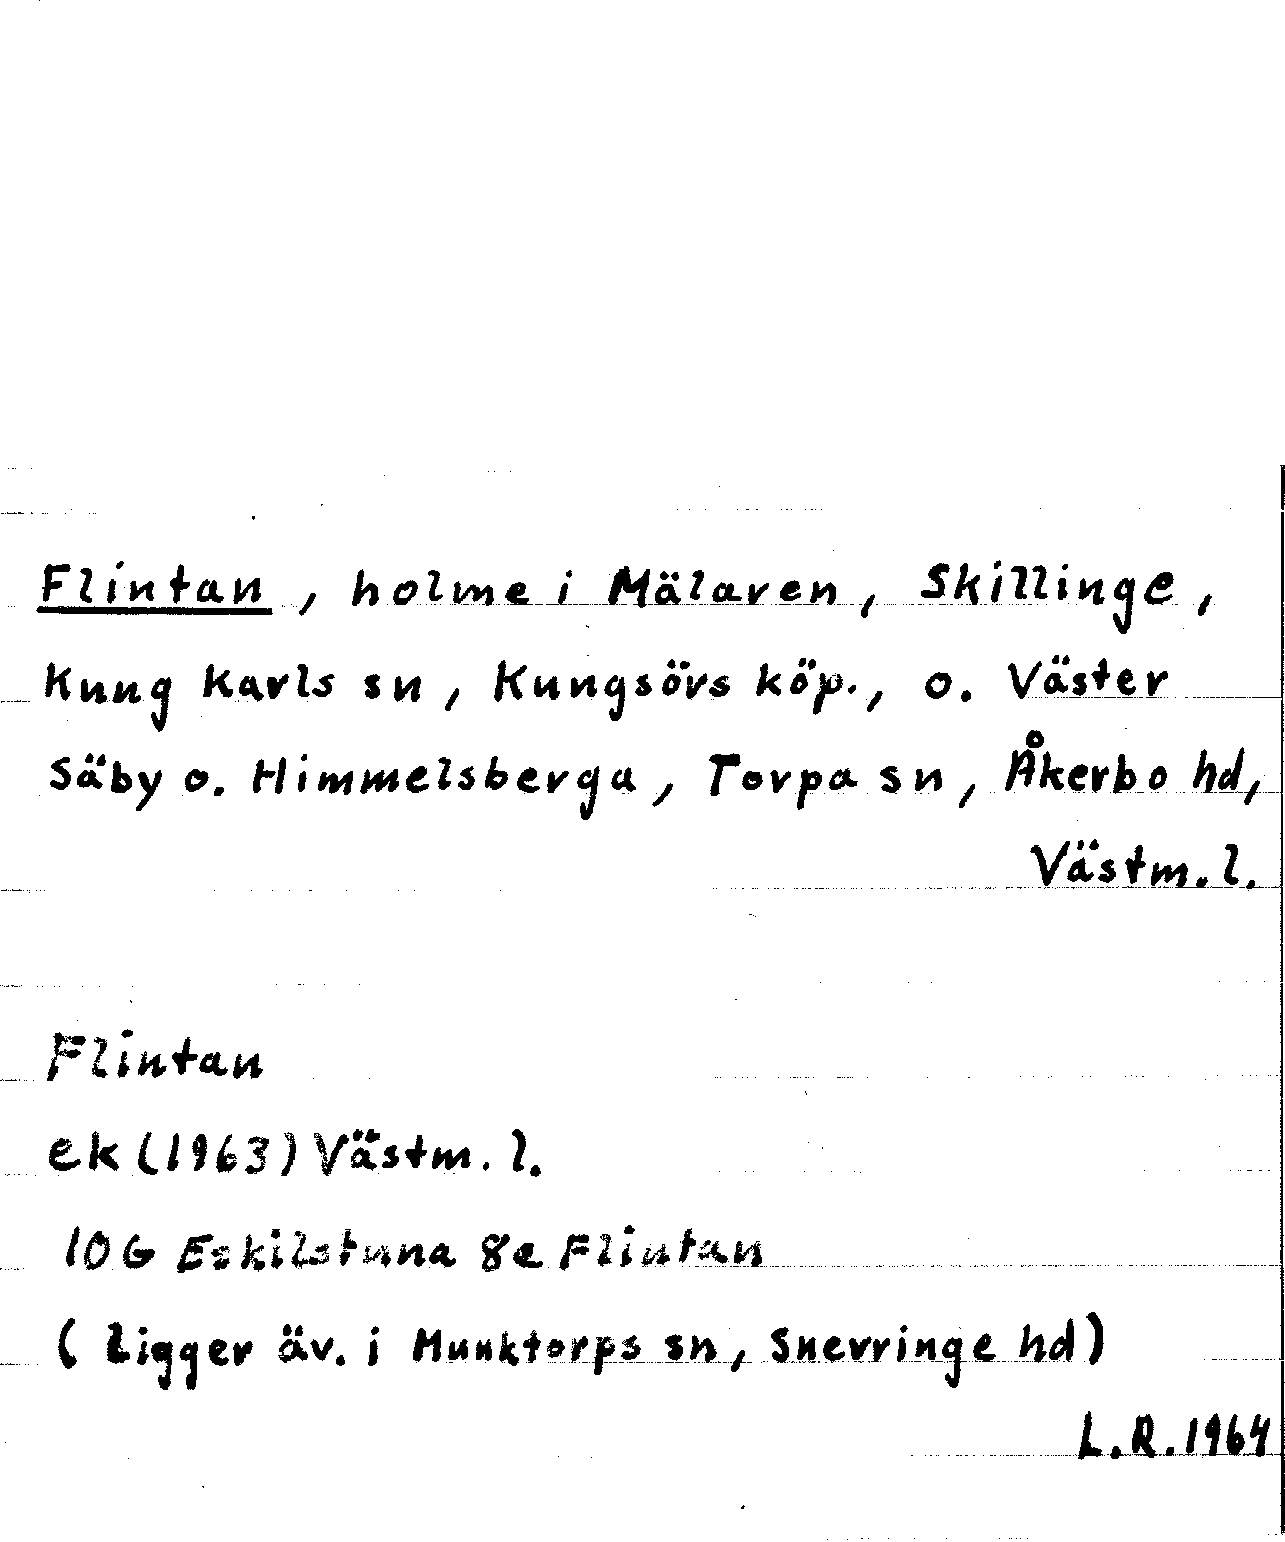 Flintan, holme i Mälaren, Skillinge,
Kung Karls sn, Kungsörs köp., o. Väster
Säby o. Himmelsberga, Torpa sn, Åkerbo hd,
Västm. l.
Flintan
ek (1963) Västm. l.
10G Eskilstuna 8e Flintan
(ligger äv. i Munktorps sn, Snevringe hd)
L.R. 1964